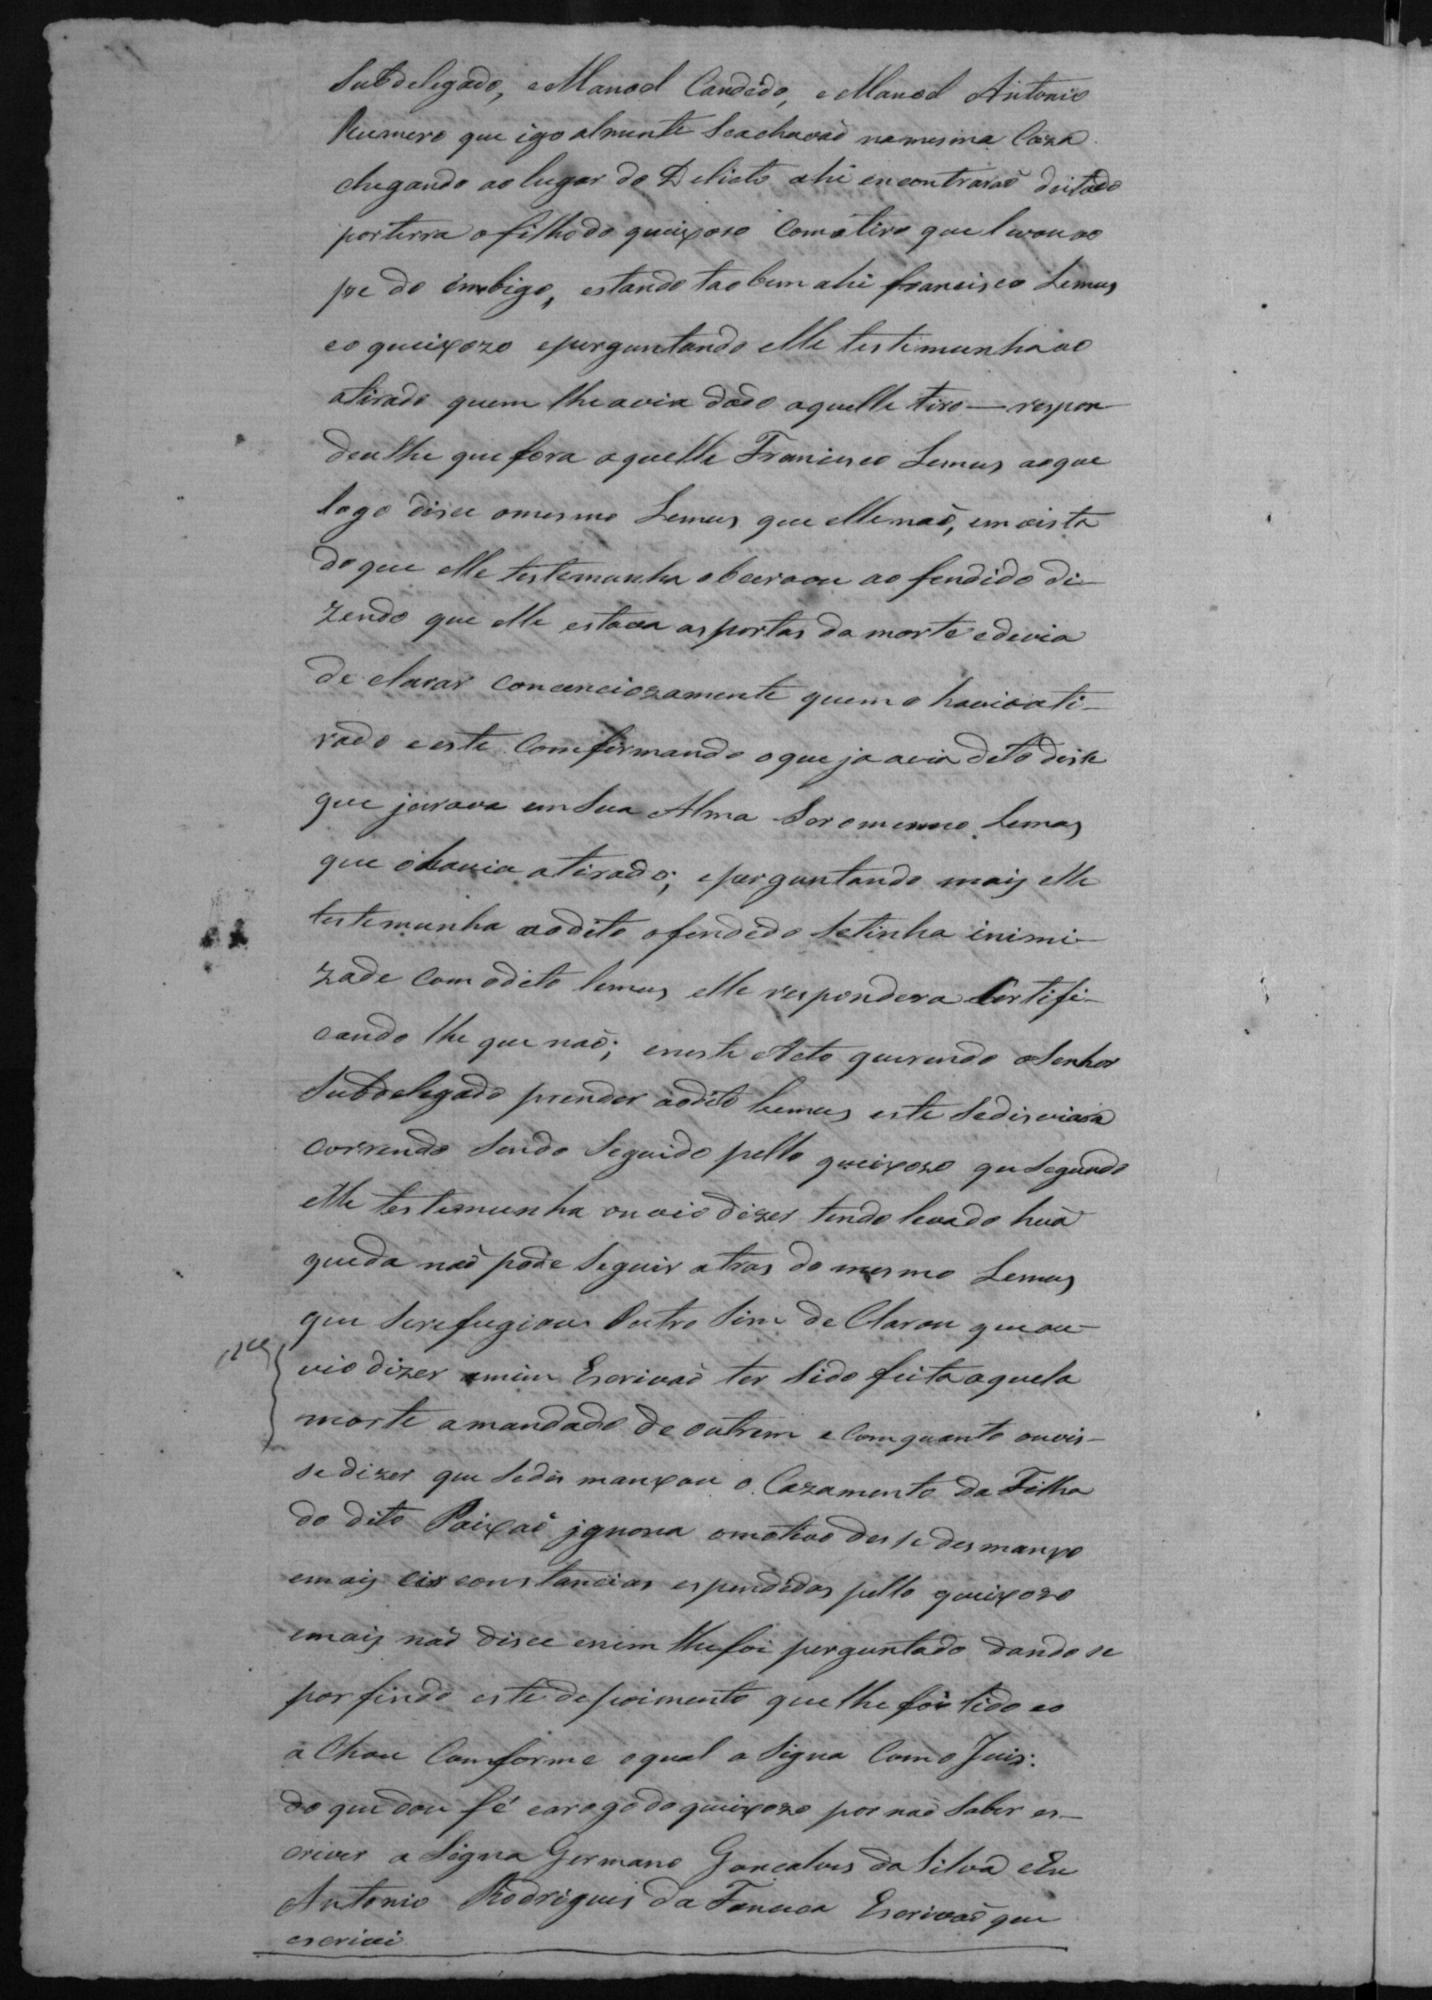 Subdelegado, e Manoel Candido, e Manoel Antonio
Rumero que igoalmente Seachavaõ namesma Caza
chegando ao lugar do Delicto ahi encontraraõ deitado
porterra ofilhodo queixoso comotiro que levou ao
pe do imbigo, estando taobem ahi francisco Lemus
eo queixozo eperguntando elle testimunha ao
atirado quem lheavia dado aquelle tiro — respon
deulhe que fora aquelle Francisco Lemus aoque
logo disce omesmo Lemus que ellenaõ, em vista
doque elle testemunha obcervou ao fendido di—
zendo que elle estava asportas da morte edevia
de clarar concenciozamente quem o haviaati—
rado eeste Comfirmando oque ja avia dito disse
que jurava em Sua Alma Seromesmo Lemos
que ohavia atirado; eperguntando mais elle
testemunha aodito ofendedo Setinha inimi—
zade com odito lemus elle respondera Certifi—
cando lhe que naõ; eneste Acto querendo oSenhor
Subdelegado prender aodito Lemus este Sedisviara
correndo Sendo Seguido pello queixozo queSegundo
elle testemunha ouvio dizer tendo levado huã
queda naõ pode Seguir atras do mesmo Lemus
que Serefugiou Outro Sim de Clarou queou—
vio dizer amim Escrivaõ ter Sido feita aquela
morte amandado de outrem e Comquanto ouvis—
se dizer que Sedes manxou o Cazamento da Filha
do dito Paixaõ jgnora omotivo desse desmanxo
emais circonstancias espendidas pello queixozo
emais naõ disce enem lhefoi perguntado dandose
porfindo este depoimento quelhe foi lido eo
a Chou Comforme oqual aSigna ComoJuis:
do que dou fé earogodoqueixozo por naõ Saber es—
criver aSigna Germano Goncalves da Silva eEu
Antonio Rodrigues da Fonseca Escrivaõ que
escrivi